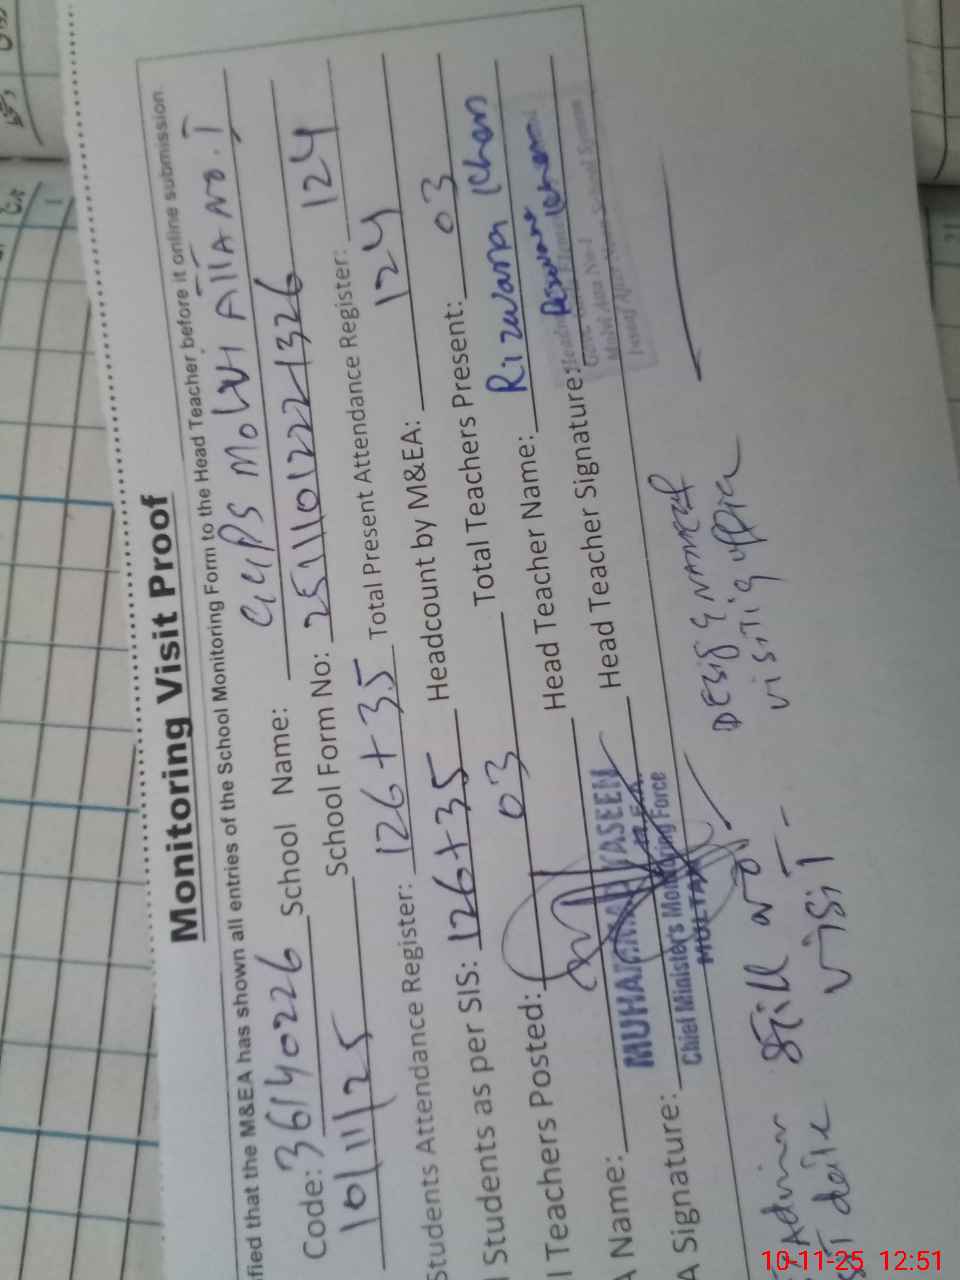 Monitoring Visit Proof
fied that the M&EA has shown all entries of the School Monitoring Form to the Head Teacher before it online submission.
Code: 36140226 School Name: GGPS Molvi Alla No. 1
10/11/25 School Form No: 25111012221326
Students Attendance Register: 126+35 Total Present Attendance Register: 124
l Students as per SIS: 126+35 Headcount by M&EA: 124
l Teachers Posted: 03 Total Teachers Present: 03
A Name: MUHAMMAD YASEEN Head Teacher Name: Rizwana Khan
M.E.A.
Chief Minister's Monitoring Force
MULTAN
A Signature: Head Teacher Signature: Rizwana Khan
Govt.
No-1
School System
Admin still no Desig & Name of
date visit visiting officer
10-11-25 12:51